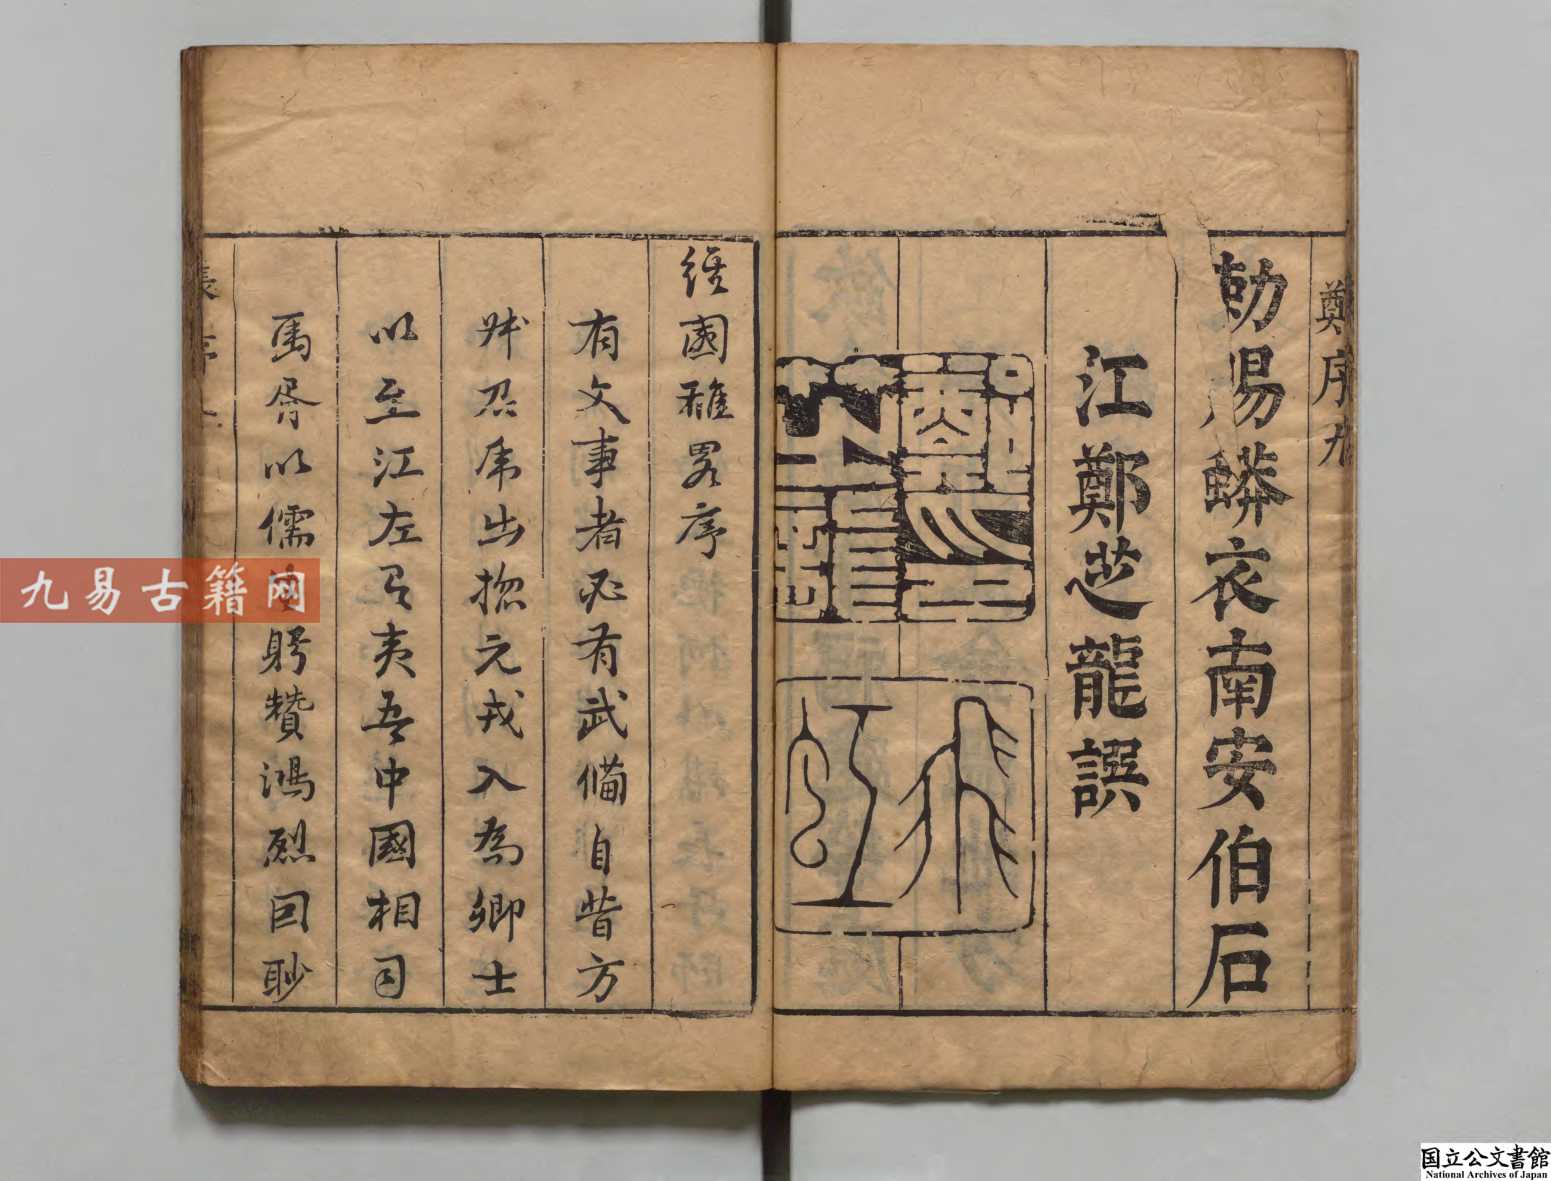 鄭序 九
勅賜蟒衣南安伯石
江鄭芝龍譔
經國雄畧序
有文事者必有武備自昔方
叔召虎出揔元戎入為卿士
以至江左
夷吾中國相司
馬胥以儒
躬贊鴻烈
九易古籍网
国立公文書館
National Archives of Japan